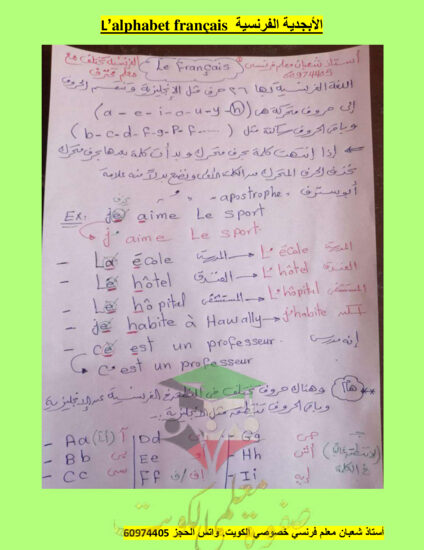 الأبجدية الفرنسية L'alphabet français
أستاذ شعبان معلم فرنسي
60974405
Le français
الفرنسية تختلف مع
معلم محترف
اللغة الفرنسية بها ٢٦ حرف مثل الإنجليزية وتنقسم الحروف
إلى حروف متحركة هى (a - e - i - o - u - y - h)
وباقى الحروف ساكنة مثل (b - c - d - f - g - P. f .....)
إذا انتهت كلمة بحرف متحرك وبدأت كلمة بعدها بحرف متحرك
نحذف الحرف المتحرك من الكلمة الأولى ونضع بدلاً منه علامة
أبوستروف apostrophe
Ex: je aime Le sport
j' aime Le sport
- La école المدرسة → L'école المدرسة
- Le hôtel الفندق → L'hôtel الفندق
- Le hôpitel المستشفى → L'hôpitel المستشفى
- je habite à Hawally → j'habite
- ce est un professeur. إنه مدرس
c'est un professeur
هام وهناك حروف تختلف فى النطق فى الفرنسية عن الإنجليزية
وباقى الحروف تنطق مثل الإنجليزية
- Aa (آ) Dd - Gg جى
- Bb بى Ee - Hh آش
- Cc سى Ff إف - Ii إيه
صفوة معلمي الكويت
أستاذ شعبان معلم فرنسي خصوصي الكويت, واتس الحجز 60974405